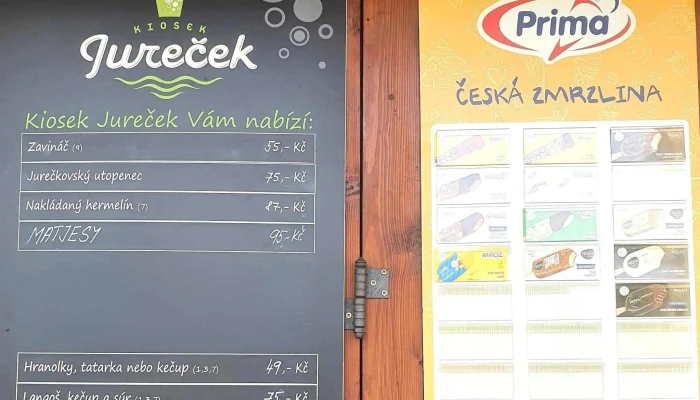 KIOSEK
Jureček
Kiosek Jureček Vám nabízí:
Zavináč (4) 55,- Kč
Jurečkovský utopenec 75,- Kč
Nakládaný hermelín (7) 87,- Kč
MATJESY 95,- Kč
Hranolky, tatarka nebo kečup (1,3,7) 49,- Kč
Langoš, kečup a sýr (1,3,7) 75,- Kč
Prima
ČESKÁ ZMRZLINA
MROŽ